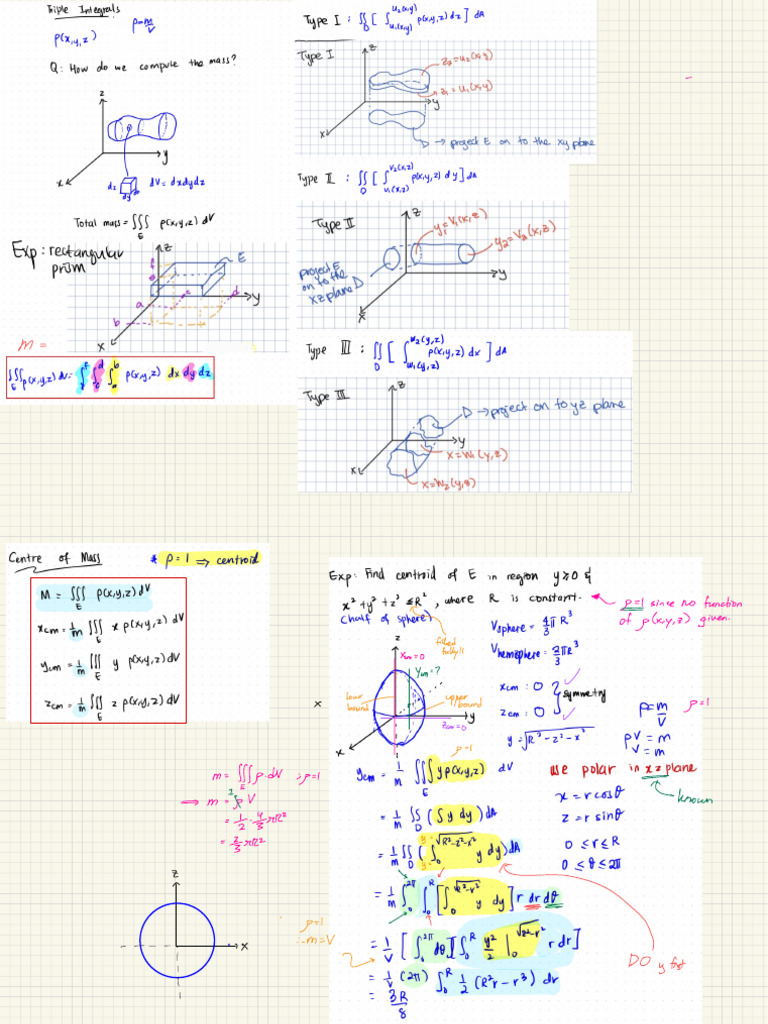 Triple Integrals
ρ(x,y,z) ρ=m/V
Q: How do we compute the mass?
z
x
y
dz
dy
dV = dxdydz
Total mass = ∭_E ρ(x,y,z) dV
Exp: rectangular
prism
z
E
f
a
c
d
y
b
x
m =
∭_E ρ(x,y,z) dV = ∫_e^f ∫_c^d ∫_a^b ρ(x,y,z) dx dy dz
Type I : ∬_D [ ∫_{u₁(x,y)}^{u₂(x,y)} ρ(x,y,z) dz ] dA
Type I
z
z₂=u₂(x,y)
z₁=u₁(x,y)
y
x
D → project E on to the xy plane
Type II : ∬_D [ ∫_{v₁(x,z)}^{v₂(x,z)} ρ(x,y,z) dy ] dA
Type II
z
y₁=V₁(x,z)
y₂=V₂(x,z)
project E
on to the D
xz plane
y
x
Type III : ∬_D [ ∫_{w₁(y,z)}^{w₂(y,z)} ρ(x,y,z) dx ] dA
Type III
z
D → project on to yz plane
y
x=W₁(y,z)
x
x=W₂(y,z)
Centre of Mass
* ρ=1 ⇒ centroid
M = ∭_E ρ(x,y,z) dV
x_cm = 1/m ∭_E x ρ(x,y,z) dV
y_cm = 1/m ∭_E y ρ(x,y,z) dV
z_cm = 1/m ∭_E z ρ(x,y,z) dV
m = ∭_E ρ dV ; ρ=1
⇒ m = ρV
= 1/2 · 4/3 πR²
= 2/3 πR²
z
x
Exp: Find centroid of E in region y≥0 &
x²+y²+z² ≤R², where R is constant.
(half of sphere)
filled
fully!!
ρ=1 since no function
of ρ(x,y,z) given.
V sphere = 4/3 π R³
V hemisphere = 2/3 πR³
z
x_cm=0
y_cm=?
lower
bound
upper
bound
y
z_cm=0
x
x
x_cm : 0
z_cm : 0
symmetry
y=√(R²-z²-x²)
ρ=m/V
ρ=1
ρV = m
V = m
ρ=1
y_cm = 1/m ∭_E y ρ(x,y,z) dV
use polar in xz plane
known
x = r cosθ
z = r sinθ
0 ≤ r ≤ R
0 ≤ θ ≤ 2π
= 1/m ∬_D (∫ y dy) dA
= 1/m ∬_D (∫_0^√(R²-z²-x²) y dy) dA
= 1/m ∫_0^2π ∫_0^R [∫_0^√(R²-r²) y dy] r dr dθ
ρ=1
∴ m=V
= 1/V [∫_0^2π dθ][∫_0^R y²/2 |_0^√(R²-r²) r dr]
DO y first
= 1/V (2π) ∫_0^R 1/2 (R²r-r³) dr
= 3R/8